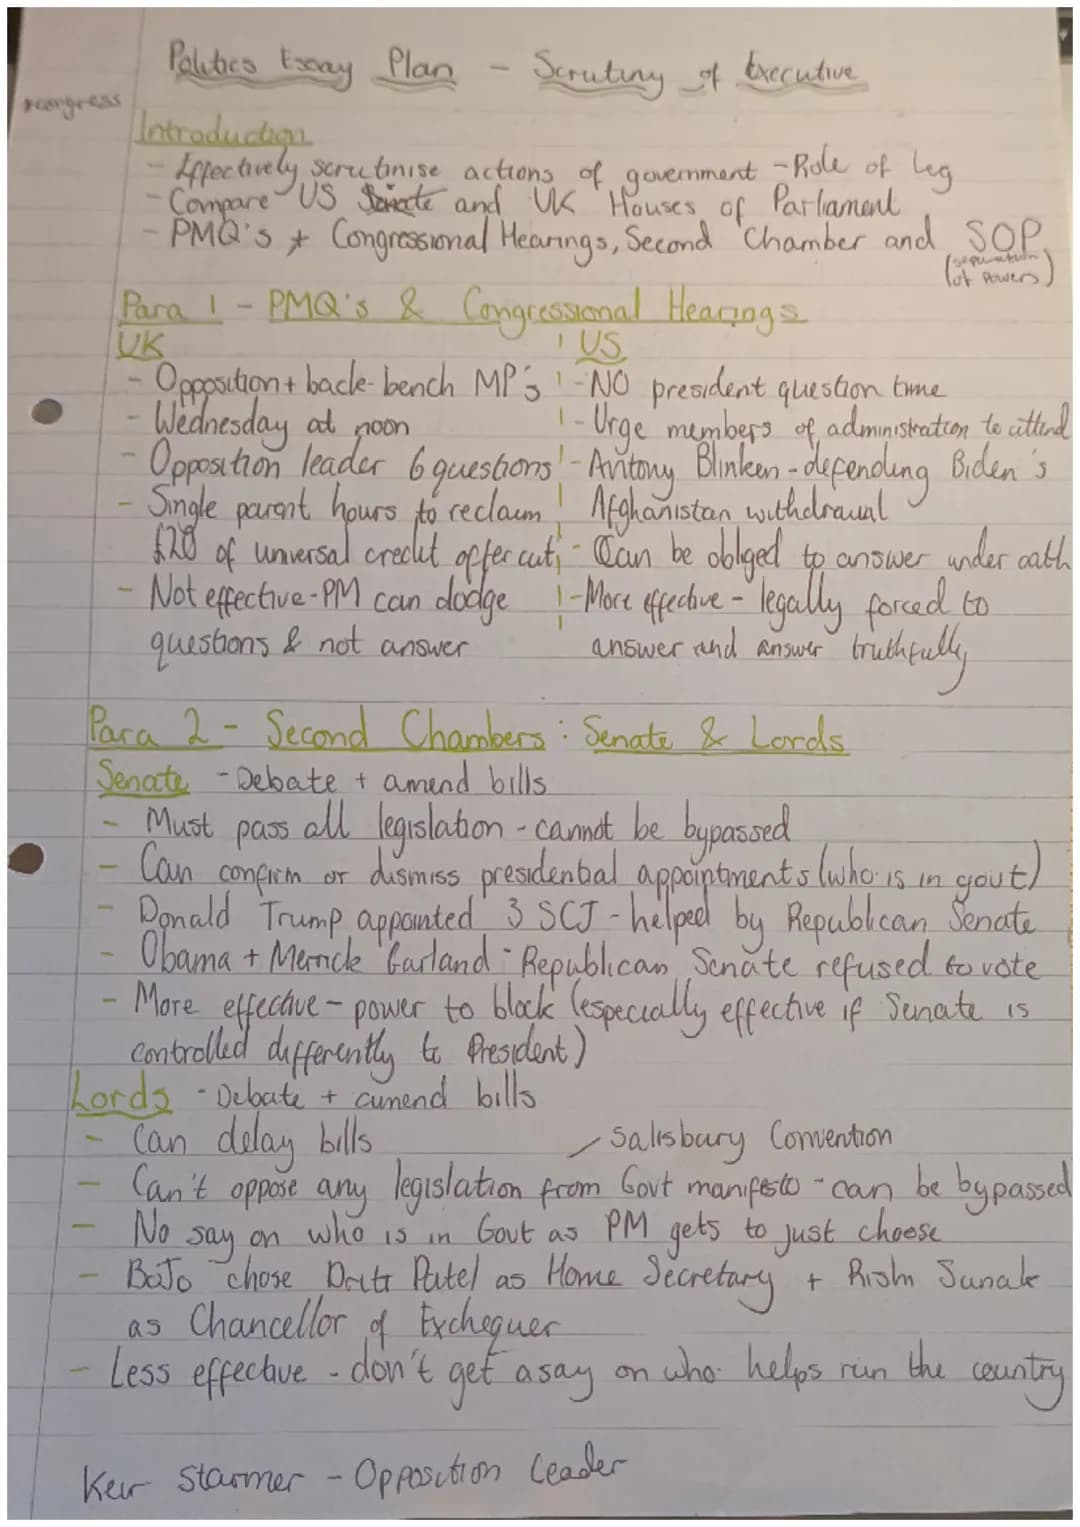 Politics Essay Plan - Scrutiny of Executive
*congress
Introduction
- Effectively scrutinise actions of government - Role of leg
- Compare US Senate and UK Houses of Parliament
- PMQ's + Congressional Hearings, Second Chamber and SOP
(separation of Powers)
Para 1 - PMQ's & Congressional Hearings
UK
- Opposition + back-bench MP's
- Wednesday at noon
- Opposition leader 6 questions
- Single parent hours to reclaim
£20 of universal credit after cut
- Not effective - PM can dodge
questions & not answer
US
- NO president question time
- Urge members of administration to attend
- Antony Blinken - defending Biden's
Afghanistan withdrawal
- Can be obliged to answer under oath
- More effective - legally forced to
answer and answer truthfully
Para 2 - Second Chambers: Senate & Lords
Senate - Debate + amend bills
- Must pass all legislation - cannot be bypassed
- Can confirm or dismiss presidential appointments (who is in govt)
- Donald Trump appointed 3 SCJ - helped by Republican Senate
- Obama + Merrick Garland - Republican Senate refused to vote
- More effective - power to block (especially effective if Senate is
controlled differently to President)
Lords - Debate + amend bills
- Can delay bills
Salisbury Convention
- Can't oppose any legislation from Govt manifesto - can be bypassed
- No say on who is in Govt as PM gets to just choose
- BoJo chose Patel as Home Secretary + Rishi Sunak
as Chancellor of Exchequer
- Less effective - don't get a say on who helps run the country
Keir Starmer - Opposition Leader